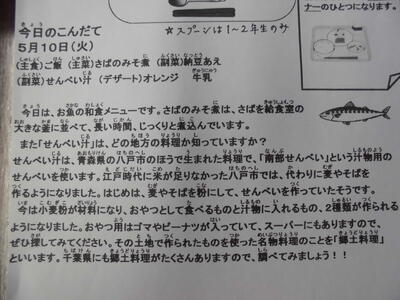 ナーのひとつになります。
☆スプーンは1～2年生のみ
今日のこんだて
5月10日(火)
(主食)ご飯 (主菜)さばのみそ煮 (副菜)納豆あえ
(副菜)せんべい汁 (デザート)オレンジ 牛乳
今日は、お魚の和食メニューです。さばのみそ煮は、さばを給食室の
大きな釜に並べて、長い時間、じっくりと煮込んでいます。
また「せんべい汁」は、どの地方の料理か知っていますか?
せんべい汁は、青森県の八戸市のほうで生まれた料理で、「南部せんべい」という汁物用の
せんべいを使います。江戸時代に米が足りなかった八戸市では、代わりに麦やそば
を作るようになりました。はじめは、麦やそばを粉にして、せんべいを作っていたそうです。
今は小麦粉が材料になり、おやつとして食べるものと汁物に入れるもの、2種類が作られる
ようになりました。おやつ用はゴマやピーナツが入っていて、スーパーにもありますので、
ぜひ探してみてください。その土地で作られたものを使った名物料理のことを「郷土料理」
といいます。千葉県にも郷土料理がたくさんありますので、調べてみましょう!!